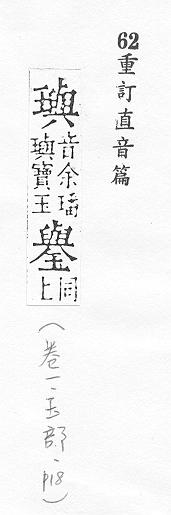 62重訂直音篇
璵
音余璠
璵寶玉
同
上
(卷一、玉部、p18)